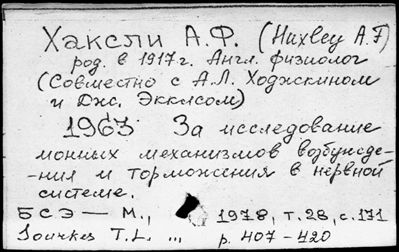 Хаксли А.Ф. (Huxley A.F)
род. в 1917 г. Англ. физиолог
(Совместно с А.Л. Ходжскином
и Дж. Экклсом)
1963 За исследование
ионных механизмов возбужде-
-ния и торможения в нервной
системе.
БСЭ — М., 1978, т. 28, с. 171
T.L. „ p. 407-420